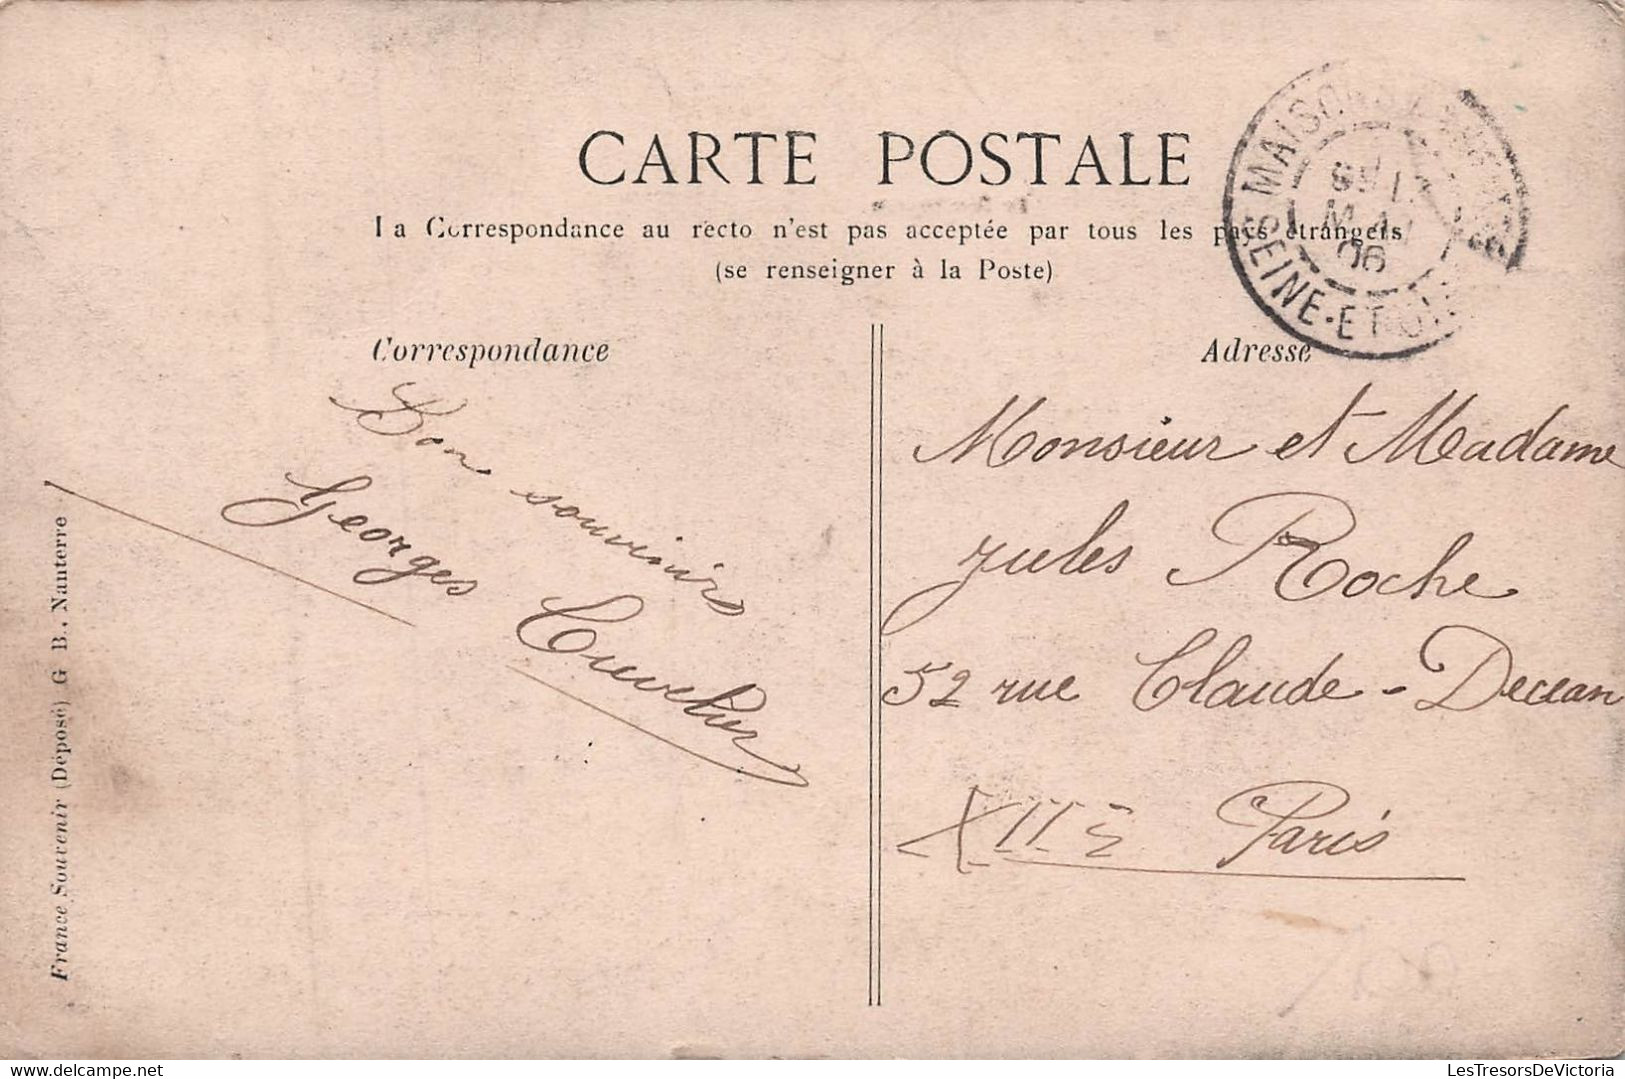 CARTE POSTALE
La Correspondance au recto n'est pas acceptée par tous les pays étrangers
(se renseigner à la Poste)
Correspondance
Bon souvenirs
Georges
Adresse
Monsieur et Madame
Jules Roche
52 rue Claude-Decean
XIIe Paris
MAISONS
MAI
06
SEINE-ET-OISE
France Souvenir (Déposé) G B., Nanterre
delcampe.net
LesTresorsDeVictoria